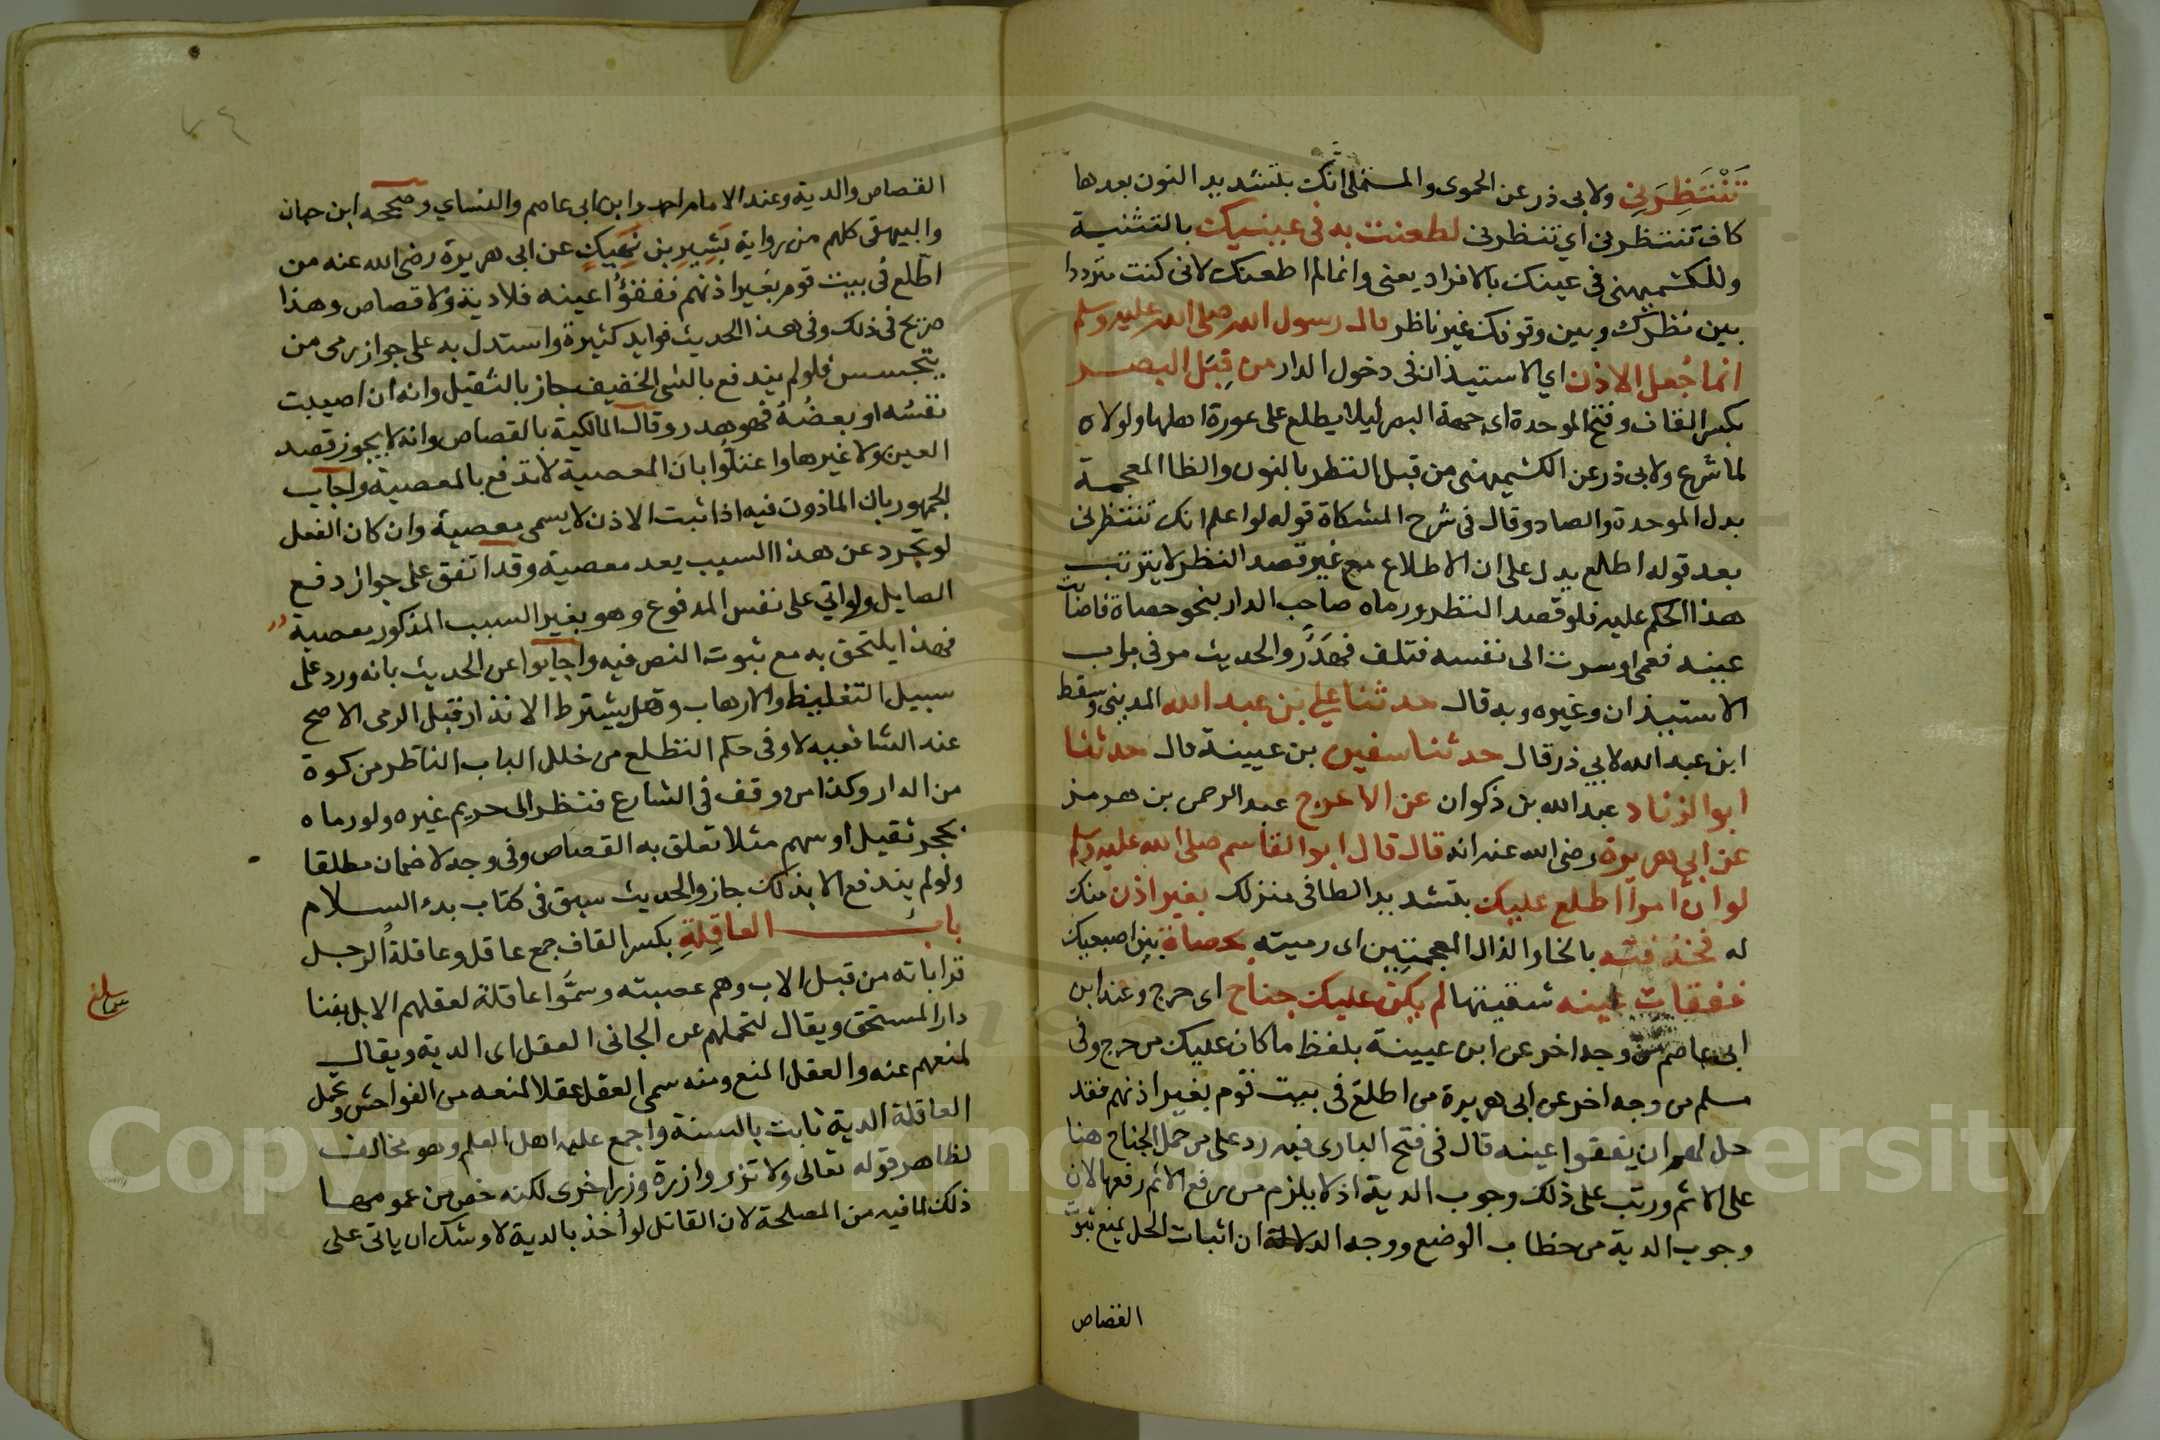 تَنْتَظِرَنِي ولابى ذر عن الحموى والمستملى انك بتشديد النون بعدها
كاف تنتظرنى اي تنظرنى لطعنت به فى عينيك بالتثنية
وللكشميهنى فى عينك بالافراد يعنى وانما لم اطعنك لانى كنت مترددا
بين نظرك وبين وقوفك غير ناظر قال رسول الله صلى الله عليه وسلم
انما جُعل الاذن اي الاستيذان فى دخول الدار من قِبَل البصر
بكسر القاف وفتح الموحدة اى جهة البصر ليلا يطلع على عورة اهلها ولولاه
لما شرع ولابى ذر عن الكشميهنى من قبل النظر بالنون والظا المعجمة
بدل الموحدة والصاد وقال فى شرح المشكاة قوله لو اعلم انك تنتظرنى
بعد قوله اطلع يدل على ان الاطلاع مع غير قصد النظر لا يترتب
هذا الحكم عليه فلو قصد النظر ورماه صاحب الدار بنحو حصاة فاصابت
عينه فعمى او سرت الى نفسه فتلف فهَدَر والحديث مر فى باب
الاستيذان وغيره وبه قال حدثنا علي بن عبد الله المدينى وسقط
ابن عبد الله لابي ذر قال حدثنا سفين بن عيينة قال حدثنا
ابو الزناد عبد الله بن ذكوان عن الاعرج عبد الرحمن بن هرمز
عن ابي هريرة رضى الله عنه انه قال قال ابو القاسم صلى الله عليه وسلم
لو ان امرأ اطلع عليك بتشديد الطا فى منزلك بغير اذن منك
له فخذفته بالخا والذال المعجمتين اى رميته بحصاة بين اصبعيك
ففقات عينه شققتها لم يكن عليك جناح اى حرج وعند ابن
ابى عاصم من وجه اخر عن ابن عيينة بلفظ ما كان عليك من حرج وفى
مسلم من وجه اخر عن ابى هريرة من اطلع فى بيت قوم بغير اذنهم فقد
حل لهم ان يفقوا عينه قال فى فتح البارى فيه رد على من حمل الجناح هنا
على الاثم ورتب على ذلك وجوب الدية اذ لا يلزم من رفع الاثم رفعها لان
وجوب الدية من خطاب الوضع ووجه الدلالة ان اثبات الحل يمنع ثبوت
القصاص
القصاص والدية وعند الامام احمد وابن ابى عاصم والنساي وصححه ابن حبان
والبيهقى كلهم من رواية بَشِيرِ بن نَهِيكٍ عن ابى هريرة رضى الله عنه من
اطلع فى بيت قوم بغير اذنهم ففقؤا عينه فلا دية ولا قصاص وهذا
صريح فى ذلك وفى هذا الحديث فوايد كثيرة واستدل به على جواز رمى من
يتجسس فلو لم يندفع بالشى الخفيف جاز بالثقيل وانه ان اصيبت
نفسُه او بعضُهُ فهو هدر وقال المالكية بالقصاص وانه لا يجوز قصد
العين ولا غيرها واعتلُّوا بان المعصية لا تدفع بالمعصية واجاب
الجمهور بان الماذون فيه اذا ثبت الاذن لا يسمى معصية وان كان الفعل
لو تجرد عن هذا السبب يعد معصية وقد اتفق على جواز دفع
الصايل ولو اتي على نفس المدفوع وهو بغير السبب المذكور معصية
فهذا يلتحق به مع ثبوت النص فيه واجابوا عن الحديث بانه ورد على
سبيل التغليظ والارهاب وهل يشترط الانذار قبل الرمى الاصح
عند الشافعيه لا وفى حكم التطلع من خلل الباب الناظر من كوة
من الدار وكذا من وقف فى الشارع فنظر الى حريم غيره ولو رماه
بحجر ثقيل او سهم مثلا تعلق به القصاص وفى وجه لا ضمان مطلقا
ولو لم يندفع الا بذلك جاز والحديث سبق فى كتاب بدء السلام
باب العاقِلةِ بكسر القاف جمع عاقل وعاقلةُ الرجل
قراباته من قبل الاب وهم عصبته وسمَّوا عاقلة لعقلهم الابل بفنا
دار المستحق ويقال لتحملهم عن الجانى العقل اى الدية ويقال
لمنعهم عنه والعقل المنع ومنه سمى العقل عقلا لمنعه من الفواحش وتحمل
العاقلة الدية ثابت بالسنة واجمع عليه اهل العلم وهو مخالف
لظاهر قوله تعالى ولا تزر وازرة وزر اخرى لكنه خص من عمومها
ذلك لما فيه من المصلحة لان القاتل لو اُخذ بالدية لاوشك ان ياتى على
Copyright © King Saud University